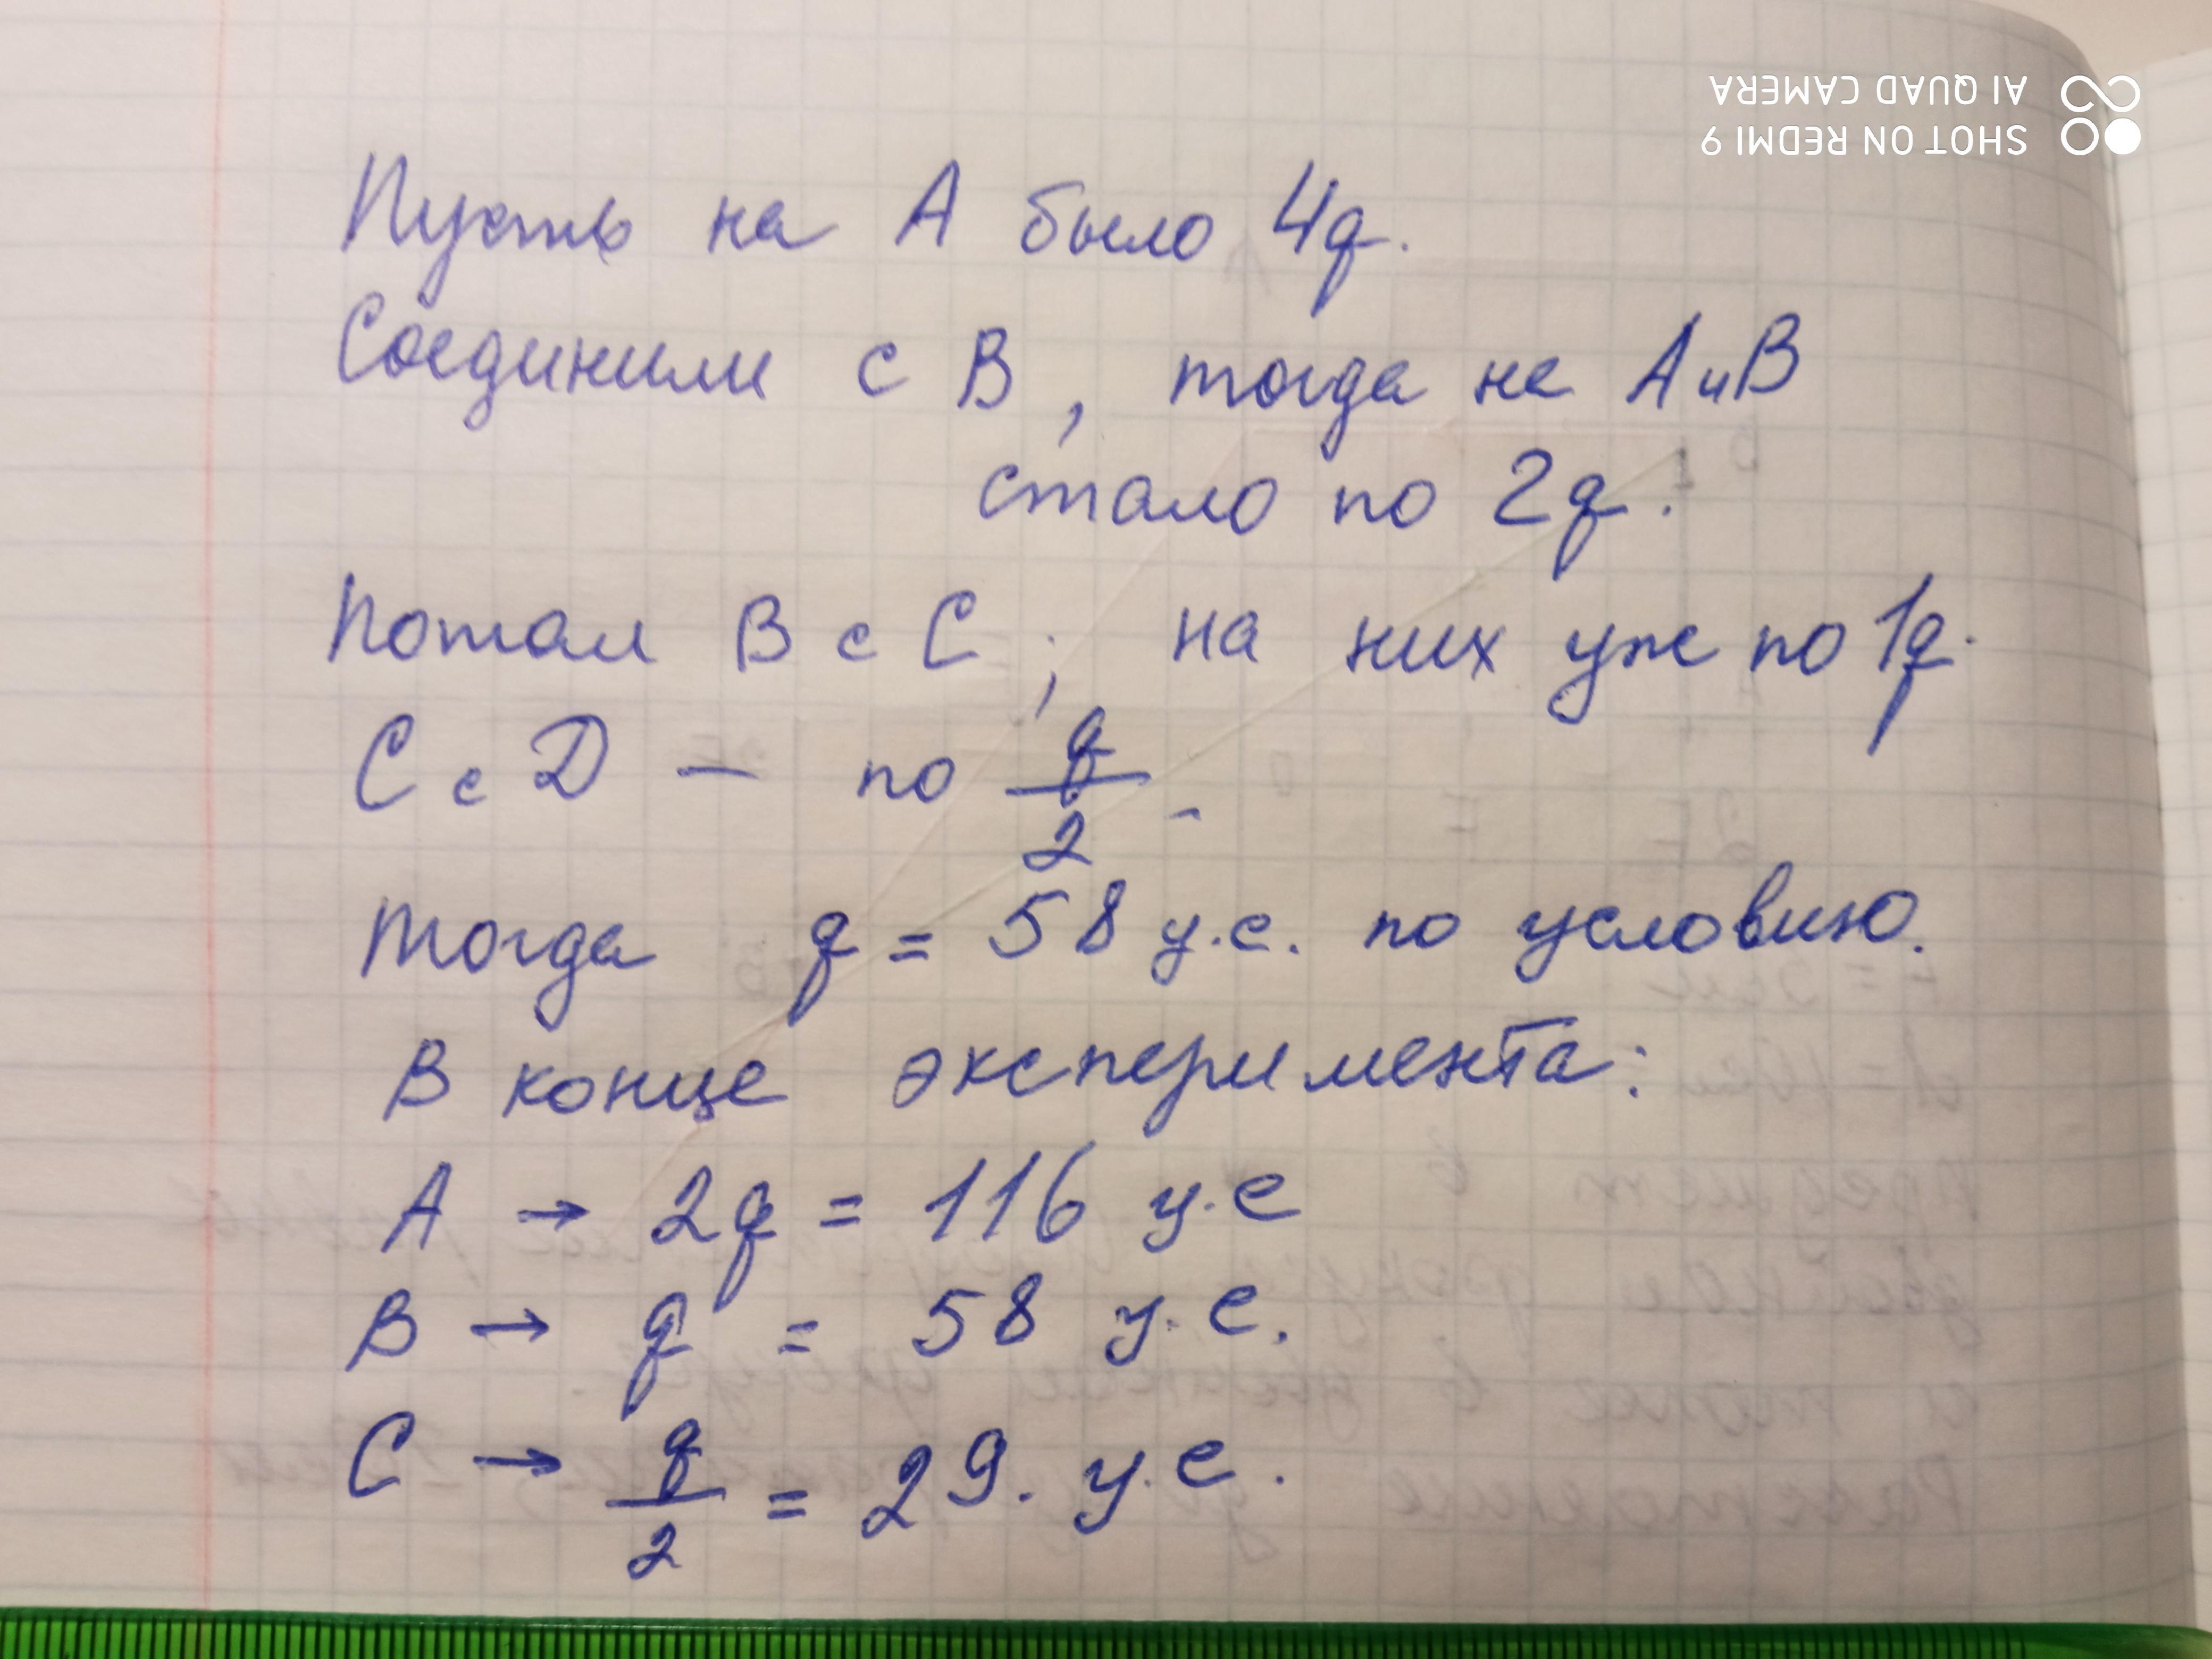 SHOT ON REDMI 9
AI QUAD CAMERA
Пусть на А было 4q.
Соединили с В, тогда на А и В
стало по 2q.
Потом В с С; на них уже по 1q.
С с D – по q/2.
Тогда q = 58 у.е. по условию.
В конце эксперимента:
А → 2q = 116 у.е
В → q = 58 у.е.
С → q/2 = 29. у.е.